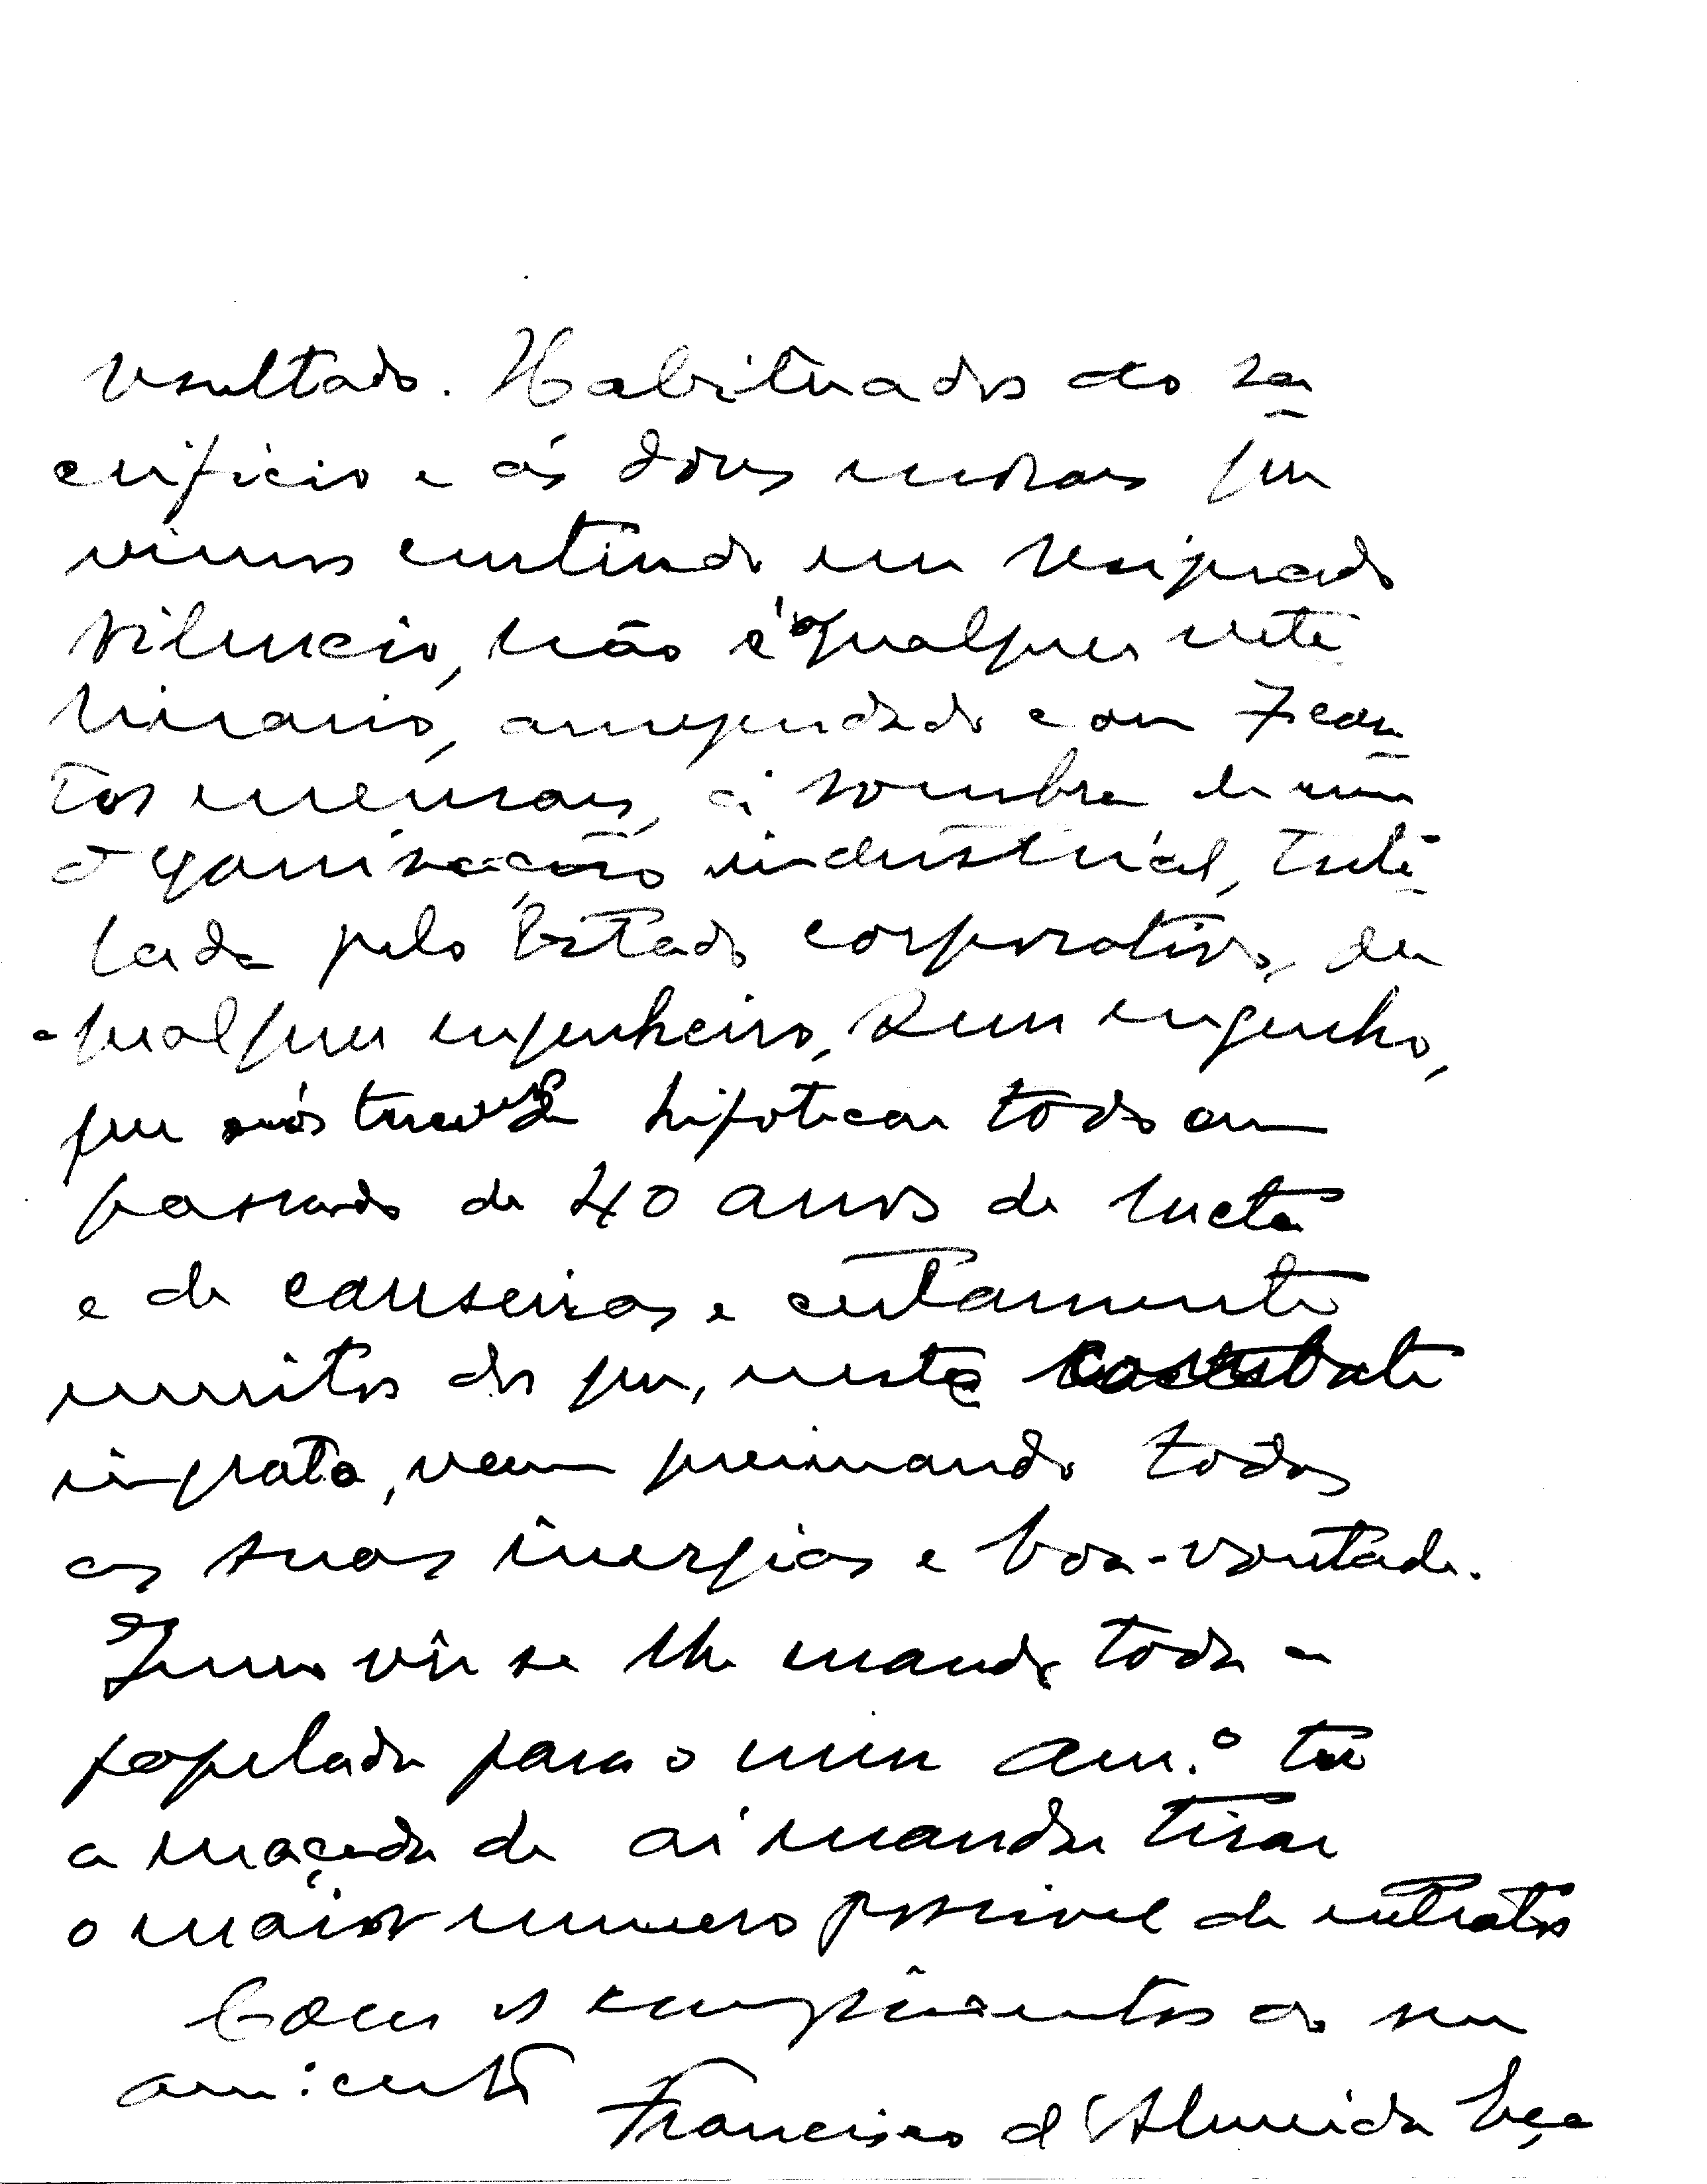 resultado. Habituados ao sa
crificio e ás dores morais que
vimos curtindo em resignado
silencio, não é qualquer vete
rinario, amesendado com 7 con
tos mensais, á sombra de uma
organisação industrial, tute
lada pelo Estado corporativo, ou
qualquer engenheiro, sem engenho,
que nós hipotecar todo um
passado de 40 anos de lucta
e de canseiras e certamente
muitos dos que, neste combate
ingrato, vem queimando todas
as suas inergias e boa-vontade.
vêr se lhe mando toda a
papelada para o meu am.º ter
a maçada de aí mandar tirar
o maior numero possivel de extratos
Com os cumprimentos do seu
am: certo
Francisco d'Almeida Eça